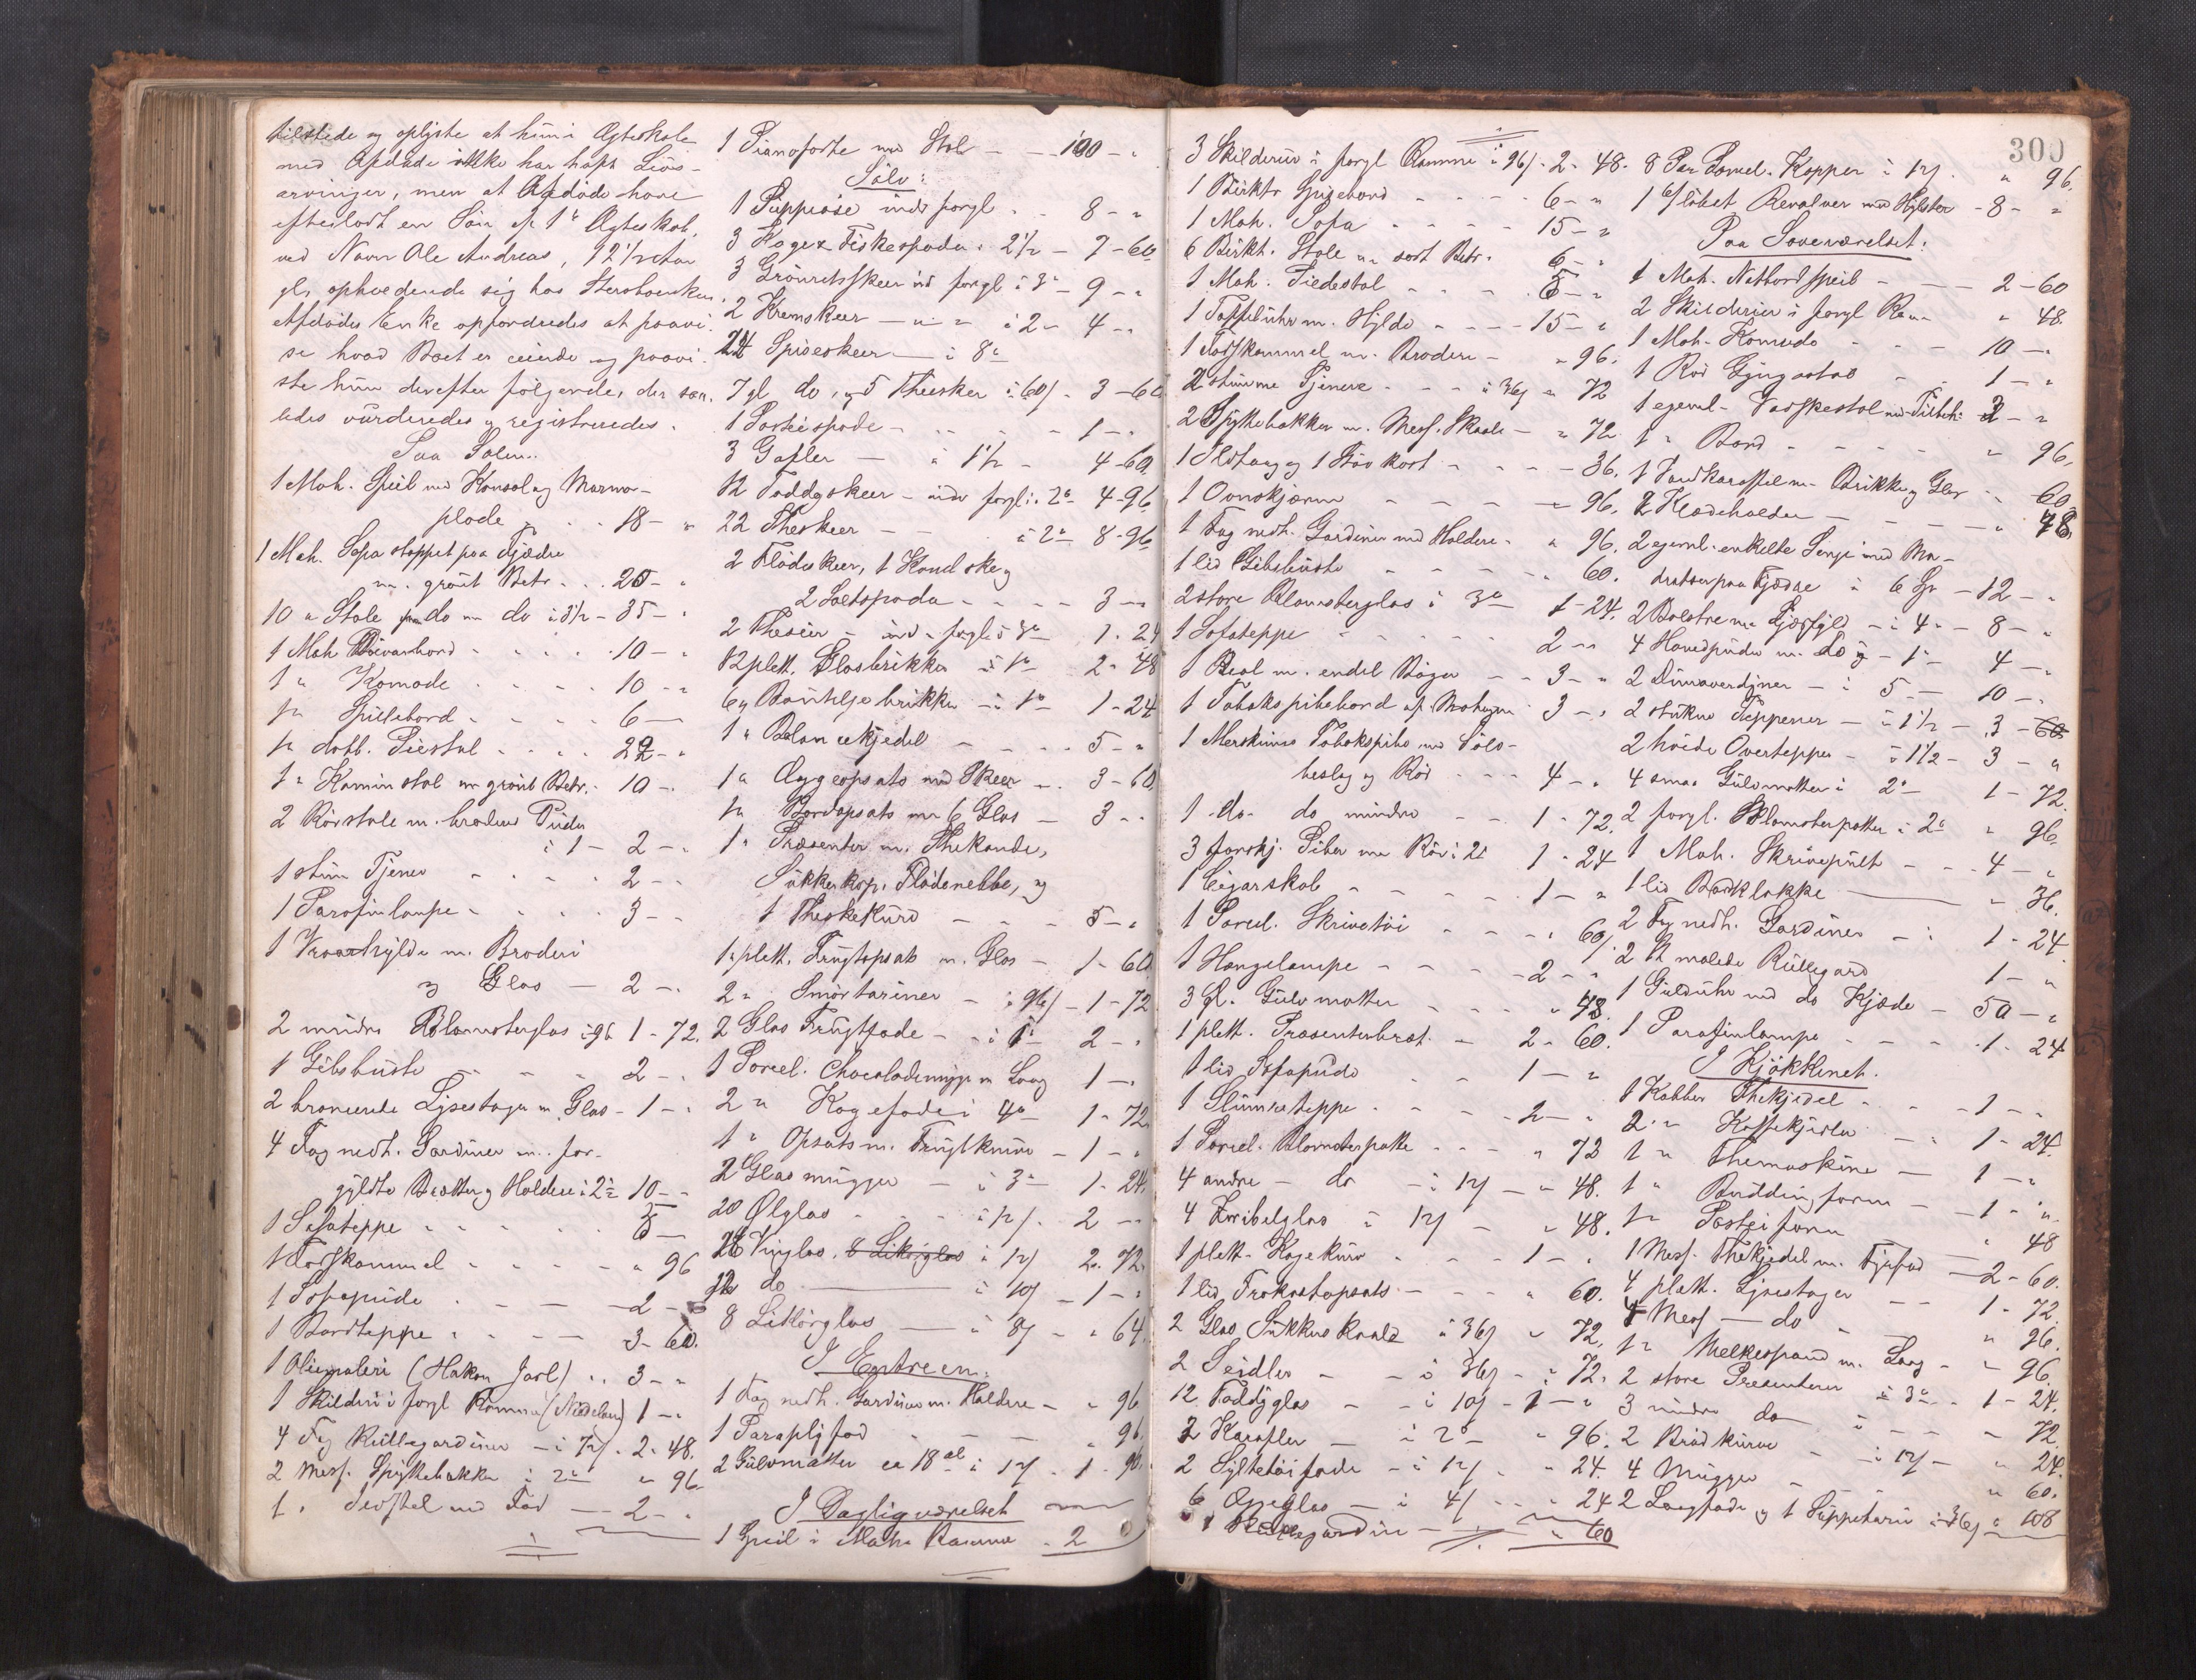 tilstede og oplyste at hun i Ægteskab
med Afdøde ikke har havt Livs-
arvinger, men at Afdøde have
efterladt en Søn af 1ste Ægteskab,
ved Navn Ole Andreas, 12 1/2 Aar
gl. opholdende sig hos Sterboenken.
Afdødes Enke opfordredes at paavi-
se hvad Boet er eiende og paavi-
ste hun derefter følgende, der saa-
ledes vurderedes og registreredes.
Paa Salen.
1 Mah. Speil med Konsol og Marmor-
plade - - 18 - "
1 Mah. Sopha stoppet paa Fjædre
m. grønt Betr. - - 20 - "
10 " Stole paa do m do à 3 1/2 - 35 - "
1 Mah Divanbord - - - 10 - "
1 " Komode - - - 10 - "
1 " Spillebord - - - 6 -
1 " dobb. Skestol - - - 22 - "
1 " Kaminstol m grønt Betr. - 10 -
2 Rørstole m. broderet Puder
à 1 - 2 - "
1 stum Tjener - - - 2 - "
1 Parafinlampe - - - 3 - "
1 Vraahylde m. Broderi
og Glas - 2 - "
2 mindre Blomsterglas à 96 1 - 72.
1 Gibsbuste - - - 2 - "
2 broncerede Lysestager m. Glas - 1 - "
4 Fag nedh. Gardiner m. for-
gyldte Brætter og Holdere à 2 1/2 10 - "
1 Sofateppe - - - 5 -
1 Fodskammel - - - " 96
1 Sofapude - - - 2 - "
1 Bordteppe - - - 3 - 60.
1 Oliemaleri (Hakon Jarl) - - 3 - "
1 Skilderi i forgl Ramme () 1 - "
4 Fag Rullegardiner - à 72 - 2 - 48.
2 Mess. Spyttebakker à 2 - " 96
1 " med Fad - 2 - "
1 Pianoforte med Stol - - 100 - "
Sølv:
1 Suppeøse indv forgl - - 8 - "
3 Kage & Fiskespader à 2 1/2 - 7 - 60
3 Grøntskeer ind forgl à 3 - 9 - "
2 Kremskeer - " - à 2 - 4 - "
24 Spiseskeer - à 8
7 gl do, og 5 Theskeer à 60 - 3 - 60
1 Posteispade - - - 1 - "
3 Gafler - à 1 1/2 - 4 - 60.
12 Toddyskeer - indv forgl à 2 4 - 96
22 Theskeer - à 2 8 - 96
2 Flødeskeer, 1 Kandske og
2 Saltspader - - - 3 - "
2 Thesier - indv forgl à 3 - 1 - 24
12 plett. Glasbrikker à 1 - 2 - 48
6 " Bouteljebrikker - à 1 - 1 - 24
1 " Balancekjedel - - - 5 - "
1 " Æggeopsats med Skeer - 3 - 60.
1 " Bordopsats m 6 Glas - 3 - "
1 " Præsenter m. Thekande,
Sukkerkop, Flødenebbe, og
1 Theskekurv - - - 5 - "
1 " plett. Frugtopsats m. Glas - 1 - 60.
2 " Smørtariner - à 96 - 1 - 72
2 Glas Frugtfade - - à 1 - 2 - "
1 Porcel. Chocolademugge m Laag 1 - "
2 " Kagefade à 4 - 1 - 72.
1 " Opsats m. Frugtknive - 1 - "
2 Glasmugger - à 3 - 1 - 24.
20 Ølglas - - - à 12 - 2 - "
26 Vinglas, 8 Likørglas à 12 2 - 72.
12 do - à 10 - 1 - "
8 Likørglas - à 8 - " 64.
I Entreen.
1 Fag nedh. Gardiner m. Holdere - " 96
1 Paraplyfod - - - " 96.
2 Gulvmatter ca 18 al à 12 - 1 - 96.
I Dagligværelset
1 Speil i Mah. Ramme - 2
300
3 Skilderier i forgl Ramme à 96 - 2 - 48.
1 Birktr Spisebord - - - 6 - "
1 Mah. Sofa - - - 15 - "
6 Birkt. Stole m sort Betr. 6 - "
1 Mah. Piedestal - - - 5 - "
1 Taffeluhr m. Hylde - - - 15 - "
1 Fodskammel m. Broderi - " 96.
2 stumme Tjenere - - - à 36 " 72
2 Spyttebakker m. Mess. Skaale - " 72.
1 Ildtang og 1 Støvkost - - - " 36.
1 Ovnskjærm - - - " 96.
1 Fag nedh. Gardiner med Holdere - " 96.
1 lid Gibsbuste - - - " 60.
2 store Blomsterglas à 3 1 - 24.
1 Sofateppe - - - 2 - "
1 Reol m. endel Bøger - - 3 - "
1 Tobakspibebord af Mahogni 3 - "
1 Merskums Tobakspibe med Sølv-
beslag og Rør - - - 4 - "
1 do do mindre - - 1 - 72.
3 forskj. Piber m Rør à 2 1 - 24
1 Cigarskab - - - 1 - "
1 Porcel. Skrivetøi - - - " 60.
1 Hængelampe - - - 2 - "
3 gl. Gulvmatter - - - " 48.
1 plett. Præsenterbræt - 2 - 60.
1 lid Sofapude - - 1 - "
1 Slumreteppe - - - 2 - "
1 Porcel. Blomsterpotte - - - " 72
4 andre - do - à 12 - " 48.
4 Zwibelglas à 12 - " 48.
1 plett. Kagekurv - - - 1 - "
1 lid Frokostopsats - - - " 60.
2 Glas Sukkerskaale à 36 " 72.
2 Seidler - à 36 - " 72.
12 Toddyglas - - à 10 - 1 - "
2 Karafler - à 2 - " 96.
2 Syltetøifade - à 12 - " 24.
6 Æggeglas - à 4 - - " 24
1 Rullegardin - " 60
8 Par Porcel. Kopper à 12 - " 96.
1 6 løbet Revolver med Hylster - 8 - "
Paa Soveværelset:
1 Mah. Natbordspeil - - 2 - 60
2 Skilderier i forgl Ram " 48.
1 Mah. Komode - - - 10 - "
1 Rør Gyngestol - - 1 - "
1 egeml. Vadskestol med Tilbeh. 2 - "
1 " Bord - - - " 96.
1 Vandkaraffel m. Brikke og Glas - " 60.
2 Klædeholder - - - " 48.
2 egeml. enkelte Senge med Ma-
dratser paa Fjædre à 6 Sp - 12 - "
2 Bolstre m Fjærfyld - à 4 - 8 - "
4 Hovedpuder m. do - 1 - 4 - "
2 Dunoverdyner - à 5 - 10 - "
2 stukne Tepper - à 1 1/2 - 3 - 60
2 hvide Overtepper - à 1 1/2 - 3 - "
4 smaa Gulvmatter à 2 - 1 - 72.
2 forgl. Blomsterpotter à 2 " 96.
1 Mah. Skrivepult - - 4 - "
1 lid Bordklokke - " 36.
2 Fag nedh. Gardiner - à 1 - 24.
2 St malede Rullegard 1 - "
1 Gulduhr med do Kjæde - 50 - "
1 Parafinlampe - - - 1 - 24
I Kjøkkenet.
1 Kobber Thekjedel - - 1 - "
2 " Kaffekjedler - 1 - 24.
1 " Themaskine - 1 - "
1 " Buddingform - 1 - "
1 " Posteiform " 48
1 Mess. Thekjedel m. Fyrfad - 2 - 60.
4 plett. Lysestager - - 1 - 72.
4 Mess - do - " 96.
1 " Melkespand m. Laag - " 96.
2 store Presentere à 3 - 1 - 24.
3 mindre do - - " 72.
2 Brødkurve - à 12 - " 24.
4 Mugger - - " 60.
2 Langfade og 1 Suppeterin à 36 " 108